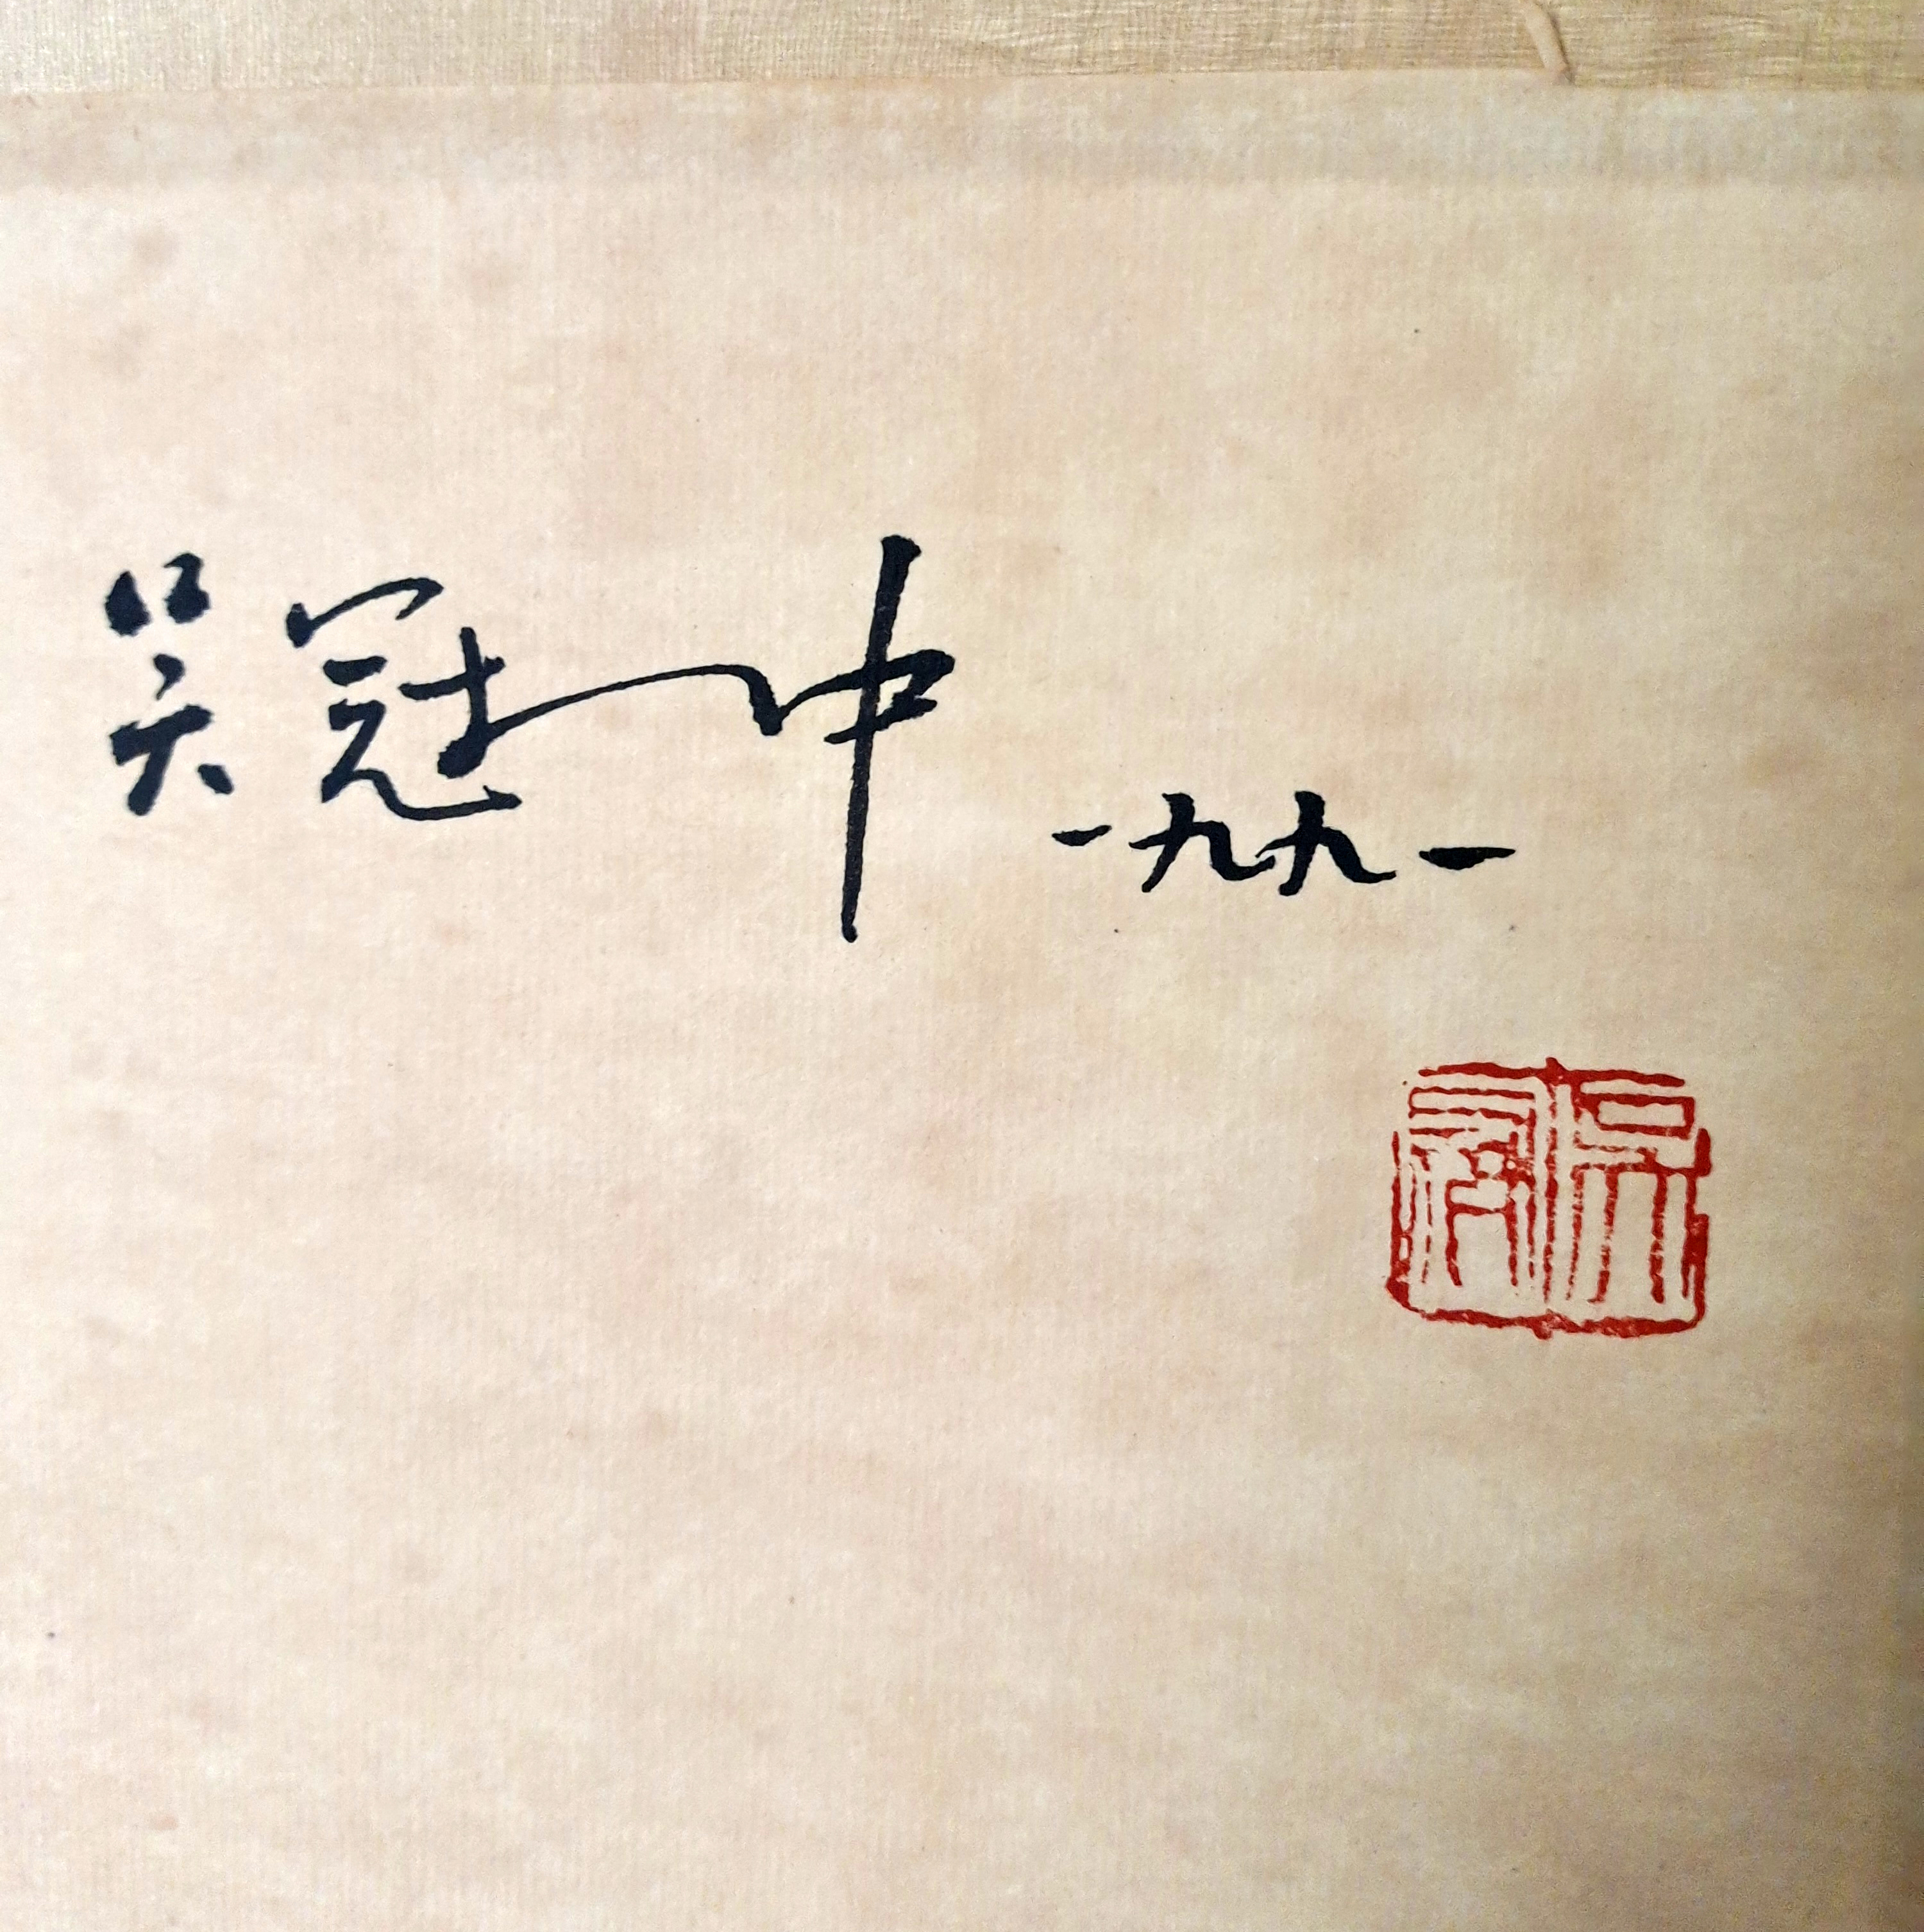 吴冠中 一九九一
吴